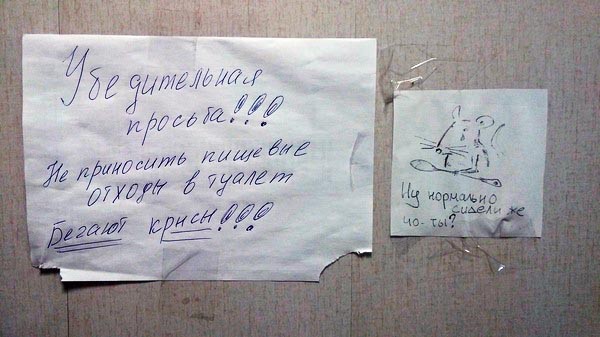 Убедительная
просьба!!!
Не приносить пищевые
отходы в туалет
Бегают крысы!!!
Ну нормально
сидели же
чо-ты?